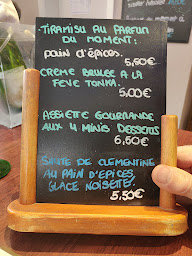 TIRAMISU AU PARFUM
DU MOMENT:
pain d'épices.
5,50€
CREME BRULEE A LA
FEVE TONKA.
5,00€
ASSIETTE GOURMANDE
AUX 4 MINIS DESSERTS
6,50€
SUITE DE CLEMENTINE
AU PAIN D'EPICES,
GLACE NOISETTE.
5,50€